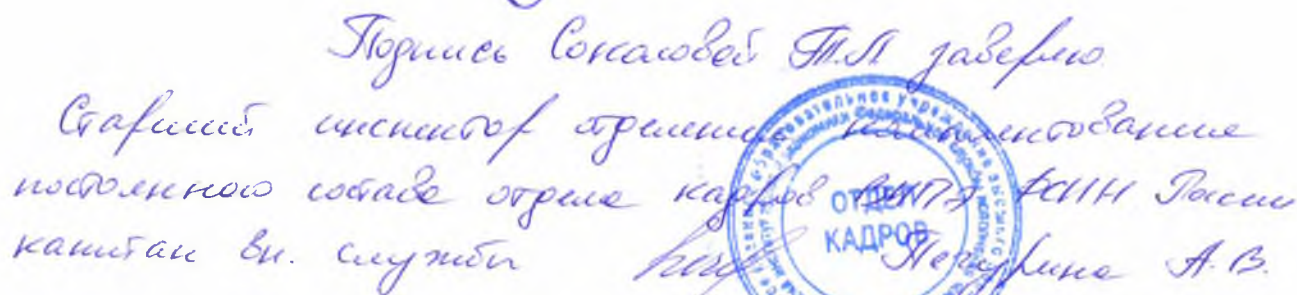 Подпись Соколовой Т.Л заверяю
Старший инспектор отделения комплектования
постоянного состава отдела кадров ФСИН России
капитан вн. службы А.В.
ОТДЕЛ
КАДРОВ